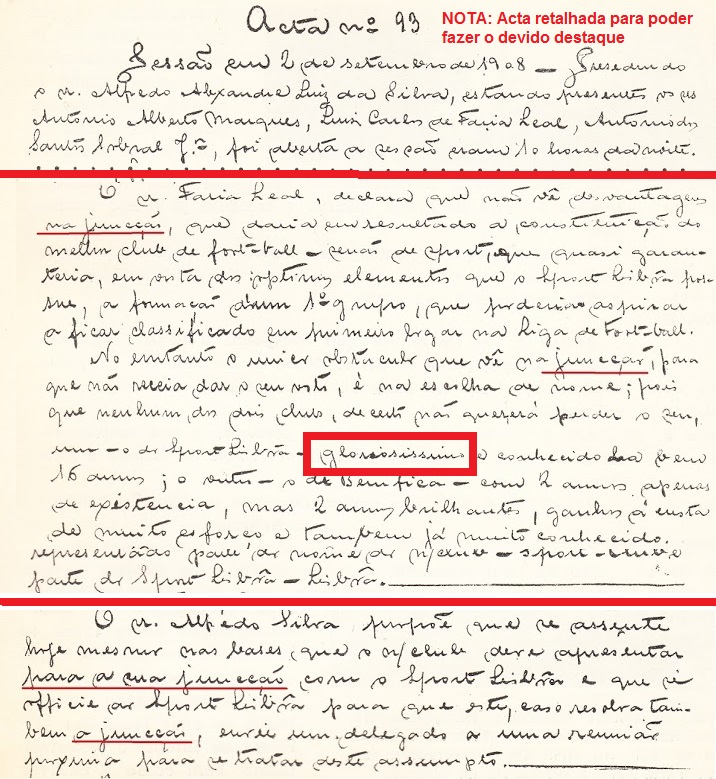 Acta nº 93
NOTA: Acta retalhada para poder
fazer o devido destaque
Sessão em 2 de setembro de 1908 — Presedindo
o sr. Alfredo Alexandre Luiz da Silva, estando presentes os srs
Antonio Alberto Marques, Luiz Carlos de Faria Leal, Antonio dos
Santos Sobral Jor, foi aberta a sessão eram 10 horas da noite.
O sr. Faria Leal, declara que não vê desvantagens
na juncção, que daria em resultado a constituição do
melhor club de foot-ball — senão de sport, que quasi garan-
teria, em vista dos optimos elementos que o Sport Lisbôa pos-
sue, a formação d'um 1º grupo, que poderia aspirar
a ficar classificado em primeiro logar na Liga de Foot-ball.
No emtanto o unico obstaculo que vê na juncção, para
que não receia dar o seu voto, é na escolha de nome; pois
que nenhum dos dois clubs, decerto não quererá perder o seu,
um — o de Sport Lisbôa — gloriosissimo e conhecido ha bem
16 annos; o outro — o de Bemfica — com 2 annos apenas
de existencia, mas 2 annos brilhantes, ganhos á custa
de muito esforço e tambem já muito conhecido.
representando parte do nome do n/club — sport-club e
parte do Sport Lisbôa — Lisbôa.
O sr. Alfrêdo Silva propõe que se assente
hoje mesmo nas bases, que o n/clube deve apresentar
para a sua juncção com o Sport Lisbôa e que se
officie ao Sport Lisbôa para que este, caso resolva tam-
bem a juncção, envie um delegado a uma reunião
proxima para se tratar deste assumpto.